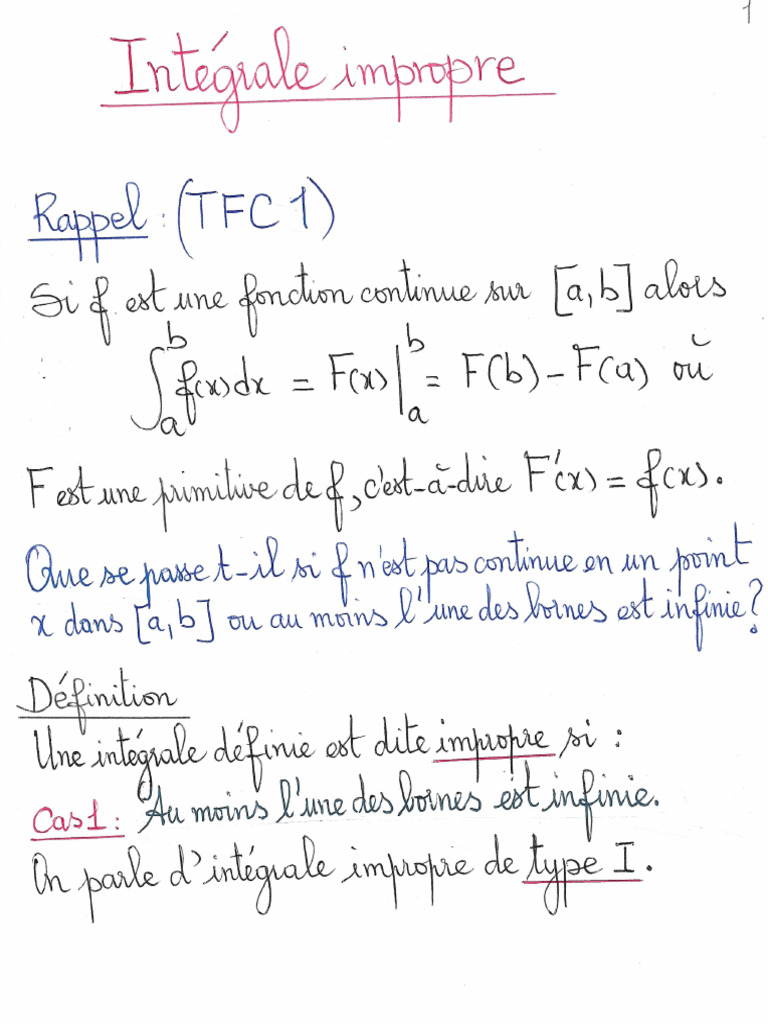 1
Intégrale impropre
Rappel : (TFC 1)
Si f est une fonction continue sur [a,b] alors
∫_a^b f(x)dx = F(x)|_a^b = F(b) - F(a) où
F est une primitive de f, c'est-à-dire F'(x) = f(x).
Que se passe t-il si f n'est pas continue en un point
x dans [a,b] ou au moins l'une des bornes est infinie?
Définition
Une intégrale définie est dite impropre si :
Cas 1 : Au moins l'une des bornes est infinie.
On parle d'intégrale impropre de type I.